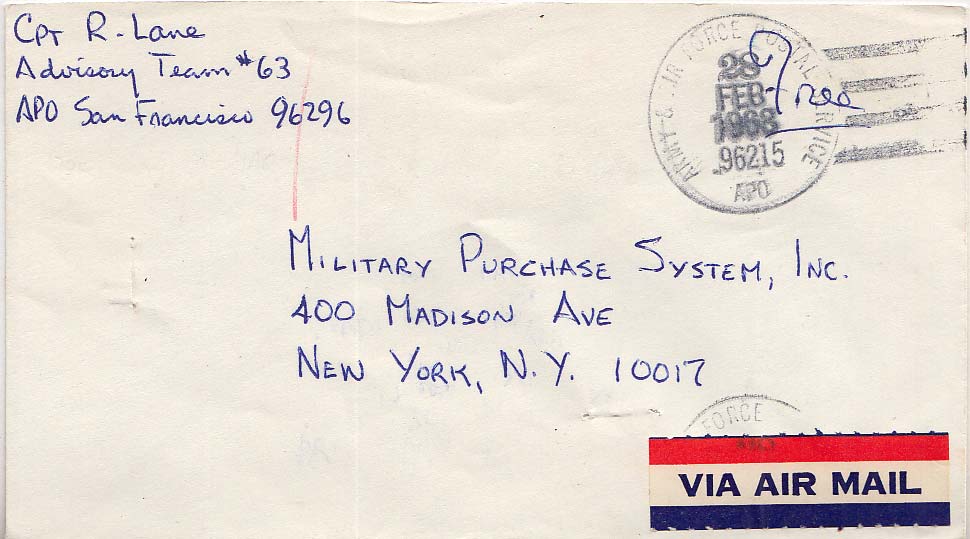 Cpt R. Lane
Advisory Team #63
APO San Francisco 96296
ARMY & AIR FORCE POSTAL SERVICE
28
FEB
1968
96215
APO
Free
MILITARY PURCHASE SYSTEM, INC.
400 MADISON AVE
NEW YORK, N.Y. 10017
FORCE
VIA AIR MAIL